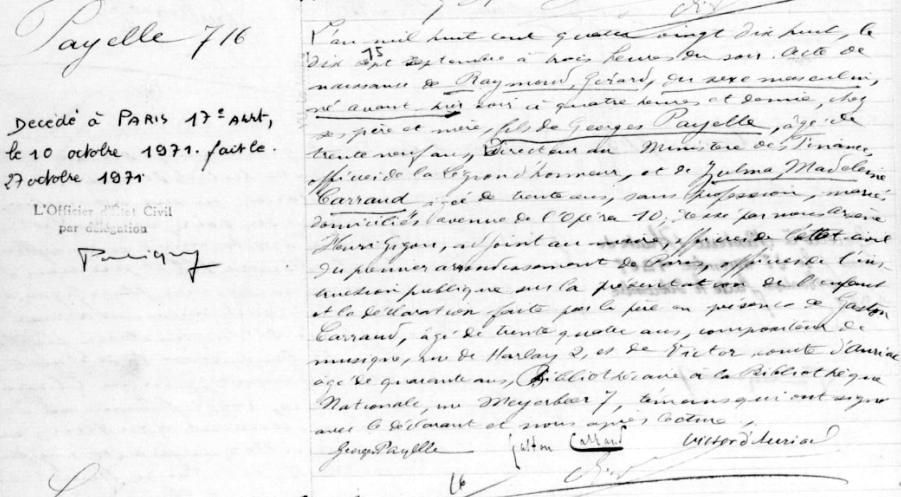 Payelle 716
Décédé à PARIS 17e Arrt,
le 10 octobre 1971. fait le
27 octobre 1971
L'Officier d'État Civil
par délégation
L'an mil huit cent quatre vingt dix huit, le
dix sept septembre à trois heures du soir. Acte de
15
naissance de Raymond, Gérard, du sexe masculin,
né avant hier soir à quatre heures et demie, chez
ses père et mère, fils de Georges Payelle, âgé de
trente neuf ans, Directeur au Ministère des Finances
officier de la Légion d'honneur, et de Zulma Madeleine
Carraud âgée de trente ans, sans profession, mariés
domiciliés avenue de l'Opéra 10. Dressé par nous
Henri Gigon, adjoint au maire, officier de l'état civil
du premier arrondissement de Paris, officier de l'ins-
truction publique sur la présentation de l'enfant
et la déclaration faite par le père en présence de Gaston
Carraud, âgé de trente quatre ans, compositeur de
musique, rue de Harlay 2, et de Victor comte d'Auriac
âgé de quarante ans, Bibliothécaire à la Bibliothèque
Nationale, rue Meyerbeer 7, témoins qui ont signé
avec le déclarant et nous après lecture.
Georges Payelle Gaston Carraud Victor d'Auriac
16